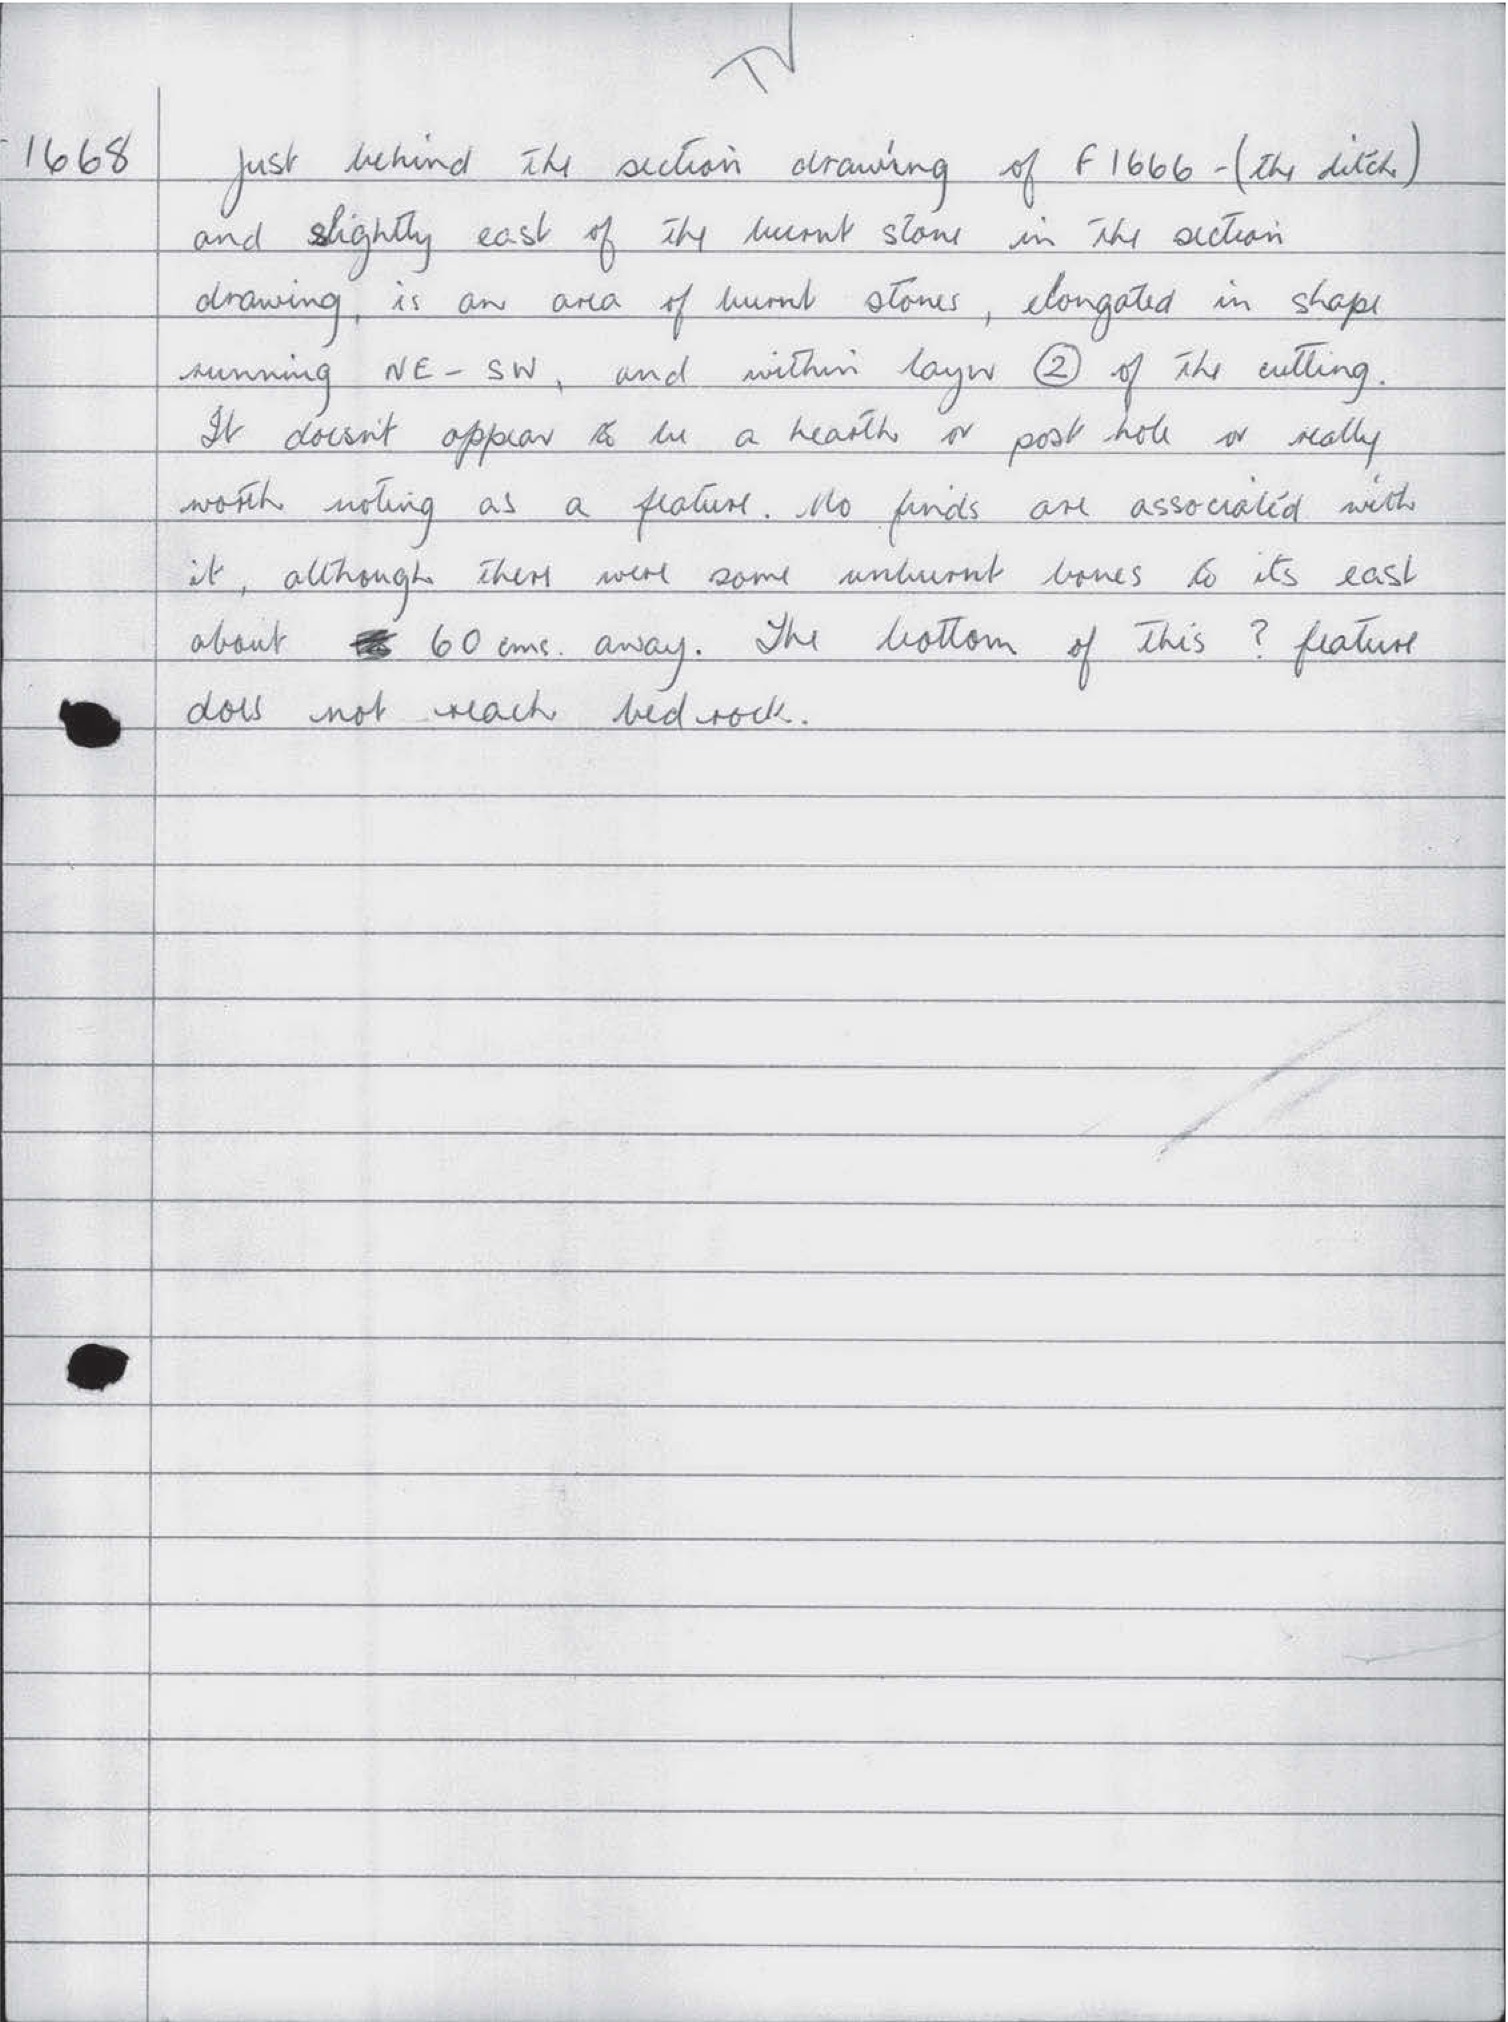 1668 Just behind the section drawing of F1666 - (the ditch)
and slightly east of the burnt stone in the section
drawing, is an area of burnt stones, elongated in shape
running NE - SW, and within layer ② of the cutting.
It doesn't appear to be a hearth or post hole or really
worth noting as a feature. No finds are associated with
it, although there were some unburnt bones to its east
about 60 cms. away. The bottom of this ? feature
does not reach bedrock.